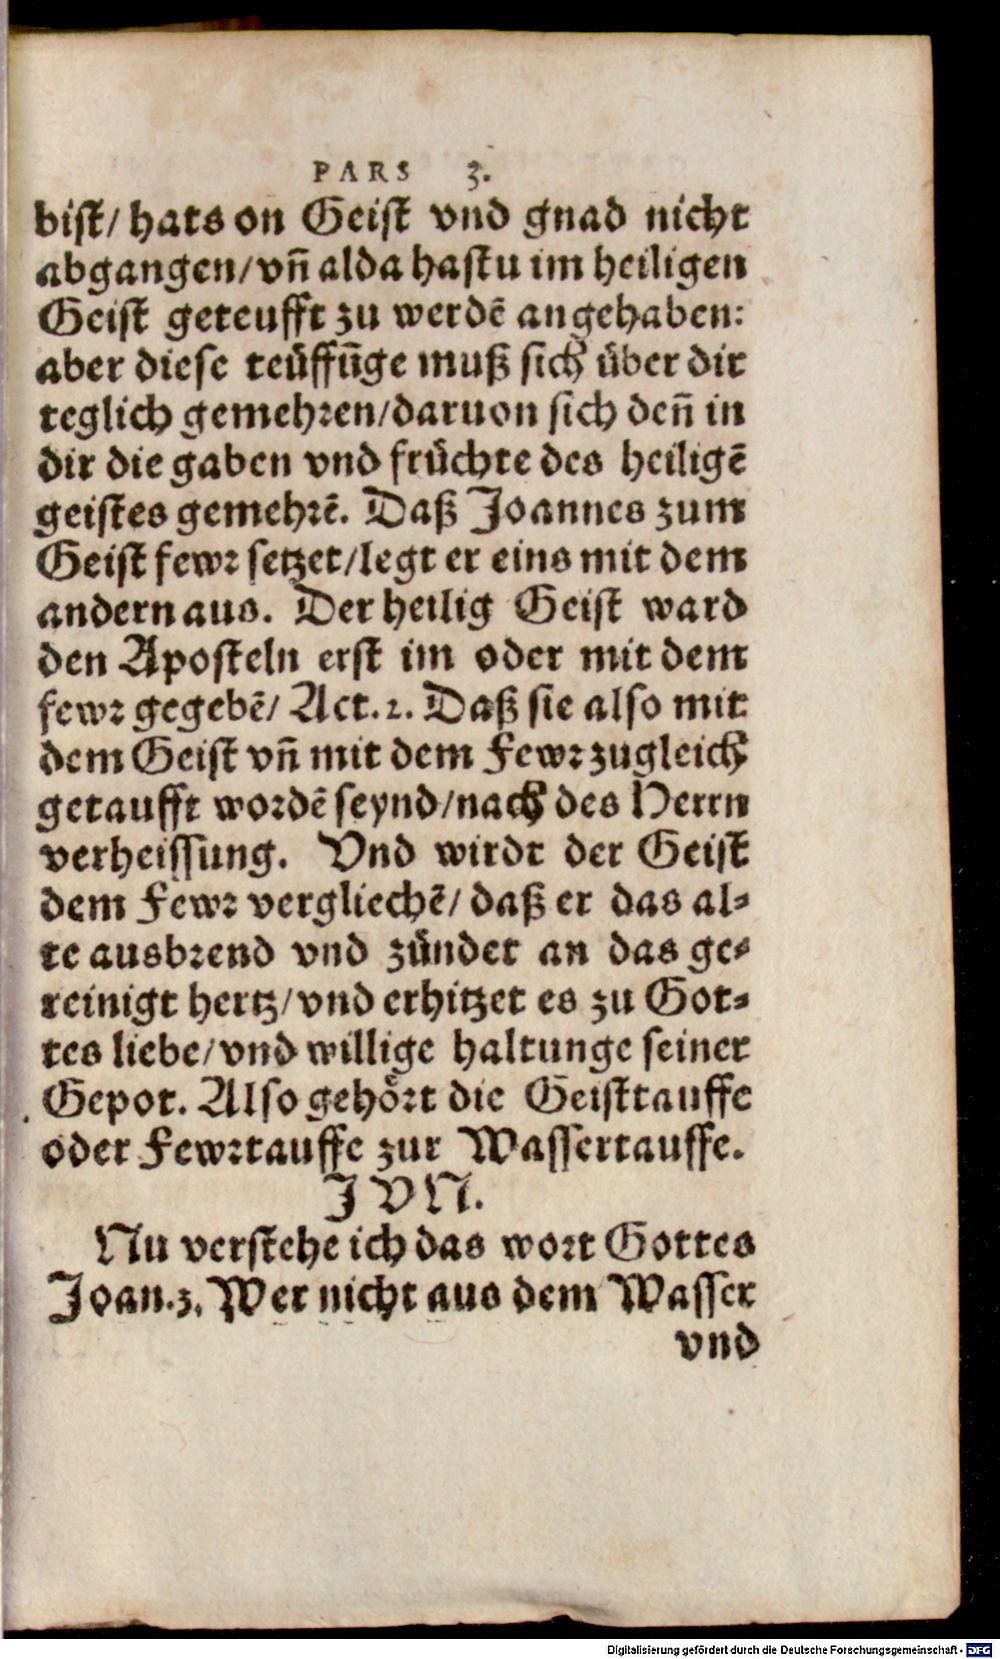 PARS 3.
bist/ hats on Geist vnd gnad nicht
abgangen/ vñ alda hastu im heiligen
Geist geteufft zu werdē angehaben:
aber diese teüffũge muß sich über dir
teglich gemehren/daruon sich deñ in
dir die gaben vnd früchte des heiligē
geistes gemehrē. Daß Joannes zum
Geist fewr setzet/legt er eins mit dem
andern aus. Der heilig Geist ward
den Aposteln erst im oder mit dem
fewr gegebē/ Act.2. Daß sie also mit
dem Geist vñ mit dem Fewr zugleich
getaufft wordē seynd/nach des Herrn
verheissung. Vnd wirdt der Geist
dem Fewr vergliechē/ daß er das al-
te ausbrend vnd zündet an das ge-
reinigt hertz/vnd erhitzet es zu Got-
tes liebe/vnd willige haltunge seiner
Gepot. Also gehört die Geisttauffe
oder Fewrtauffe zur Wassertauffe.
JVN.
Nu verstehe ich das wort Gottes
Joan.3. Wer nicht aus dem Wasser
vnd
Digitalisierung gefördert durch die Deutsche Forschungsgemeinschaft - DFG